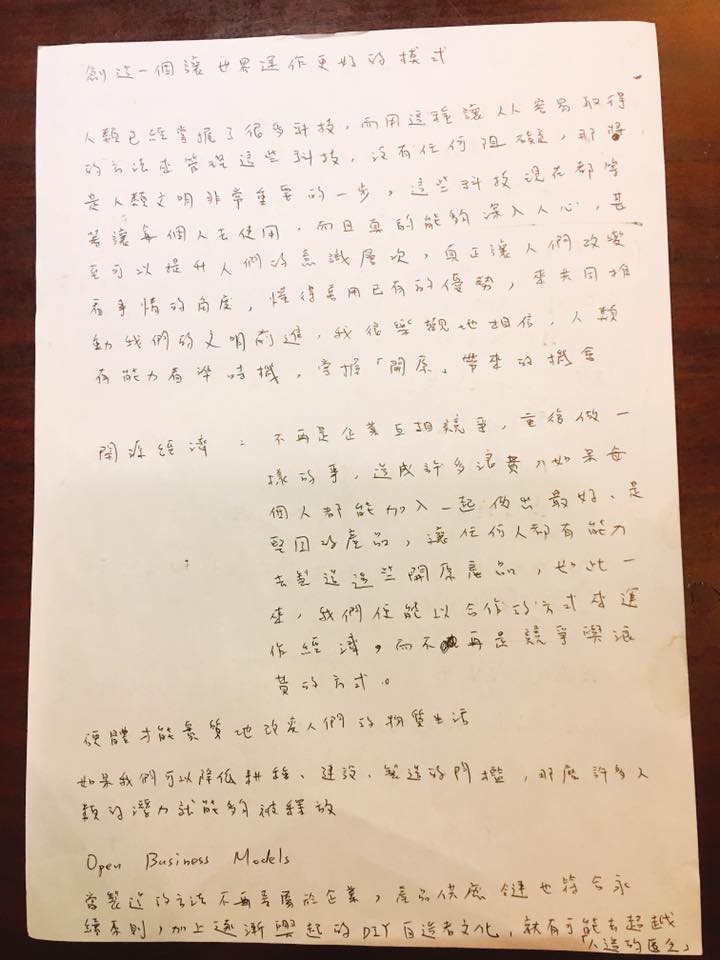 創造一個讓世界運作更好的模式
人類已經掌握了很多科技，而用這種讓人人容易取得
的方法來管理這些科技，沒有任何阻礙，那將
是人類文明非常重要的一步，這些科技現在都等
著讓每個人去使用，而且真的能夠深入人心，甚
至可以提升人們的意識層次，真正讓人們改變
看事情的角度，懂得善用已有的優勢，來共同推
動我們的文明前進，我很樂觀地相信，人類
有能力看準時機，掌握「開原」帶來的機會
開源經濟： 不再是企業互相競爭，重複做一
樣的事，造成許多浪費，如果每
個人都能加入一起做出最好、最
堅固的產品，讓任何人都有能力
去製造這些開原產品，如此一
來，我們便能以合作的方式來運
作經濟，而不再是競爭與浪
費的方式。
硬體才能實質地改變人們的物質生活
如果我們可以降低耕種、建設、製造的門檻，那麼許多人
類的潛力就能夠被釋放
Open Business Models
當製造的方法不再專屬於企業，產品供應鏈也符合永
續原則，加上逐漸興起的DIY自造者文化，就有可能去超越
「人造的匱乏」